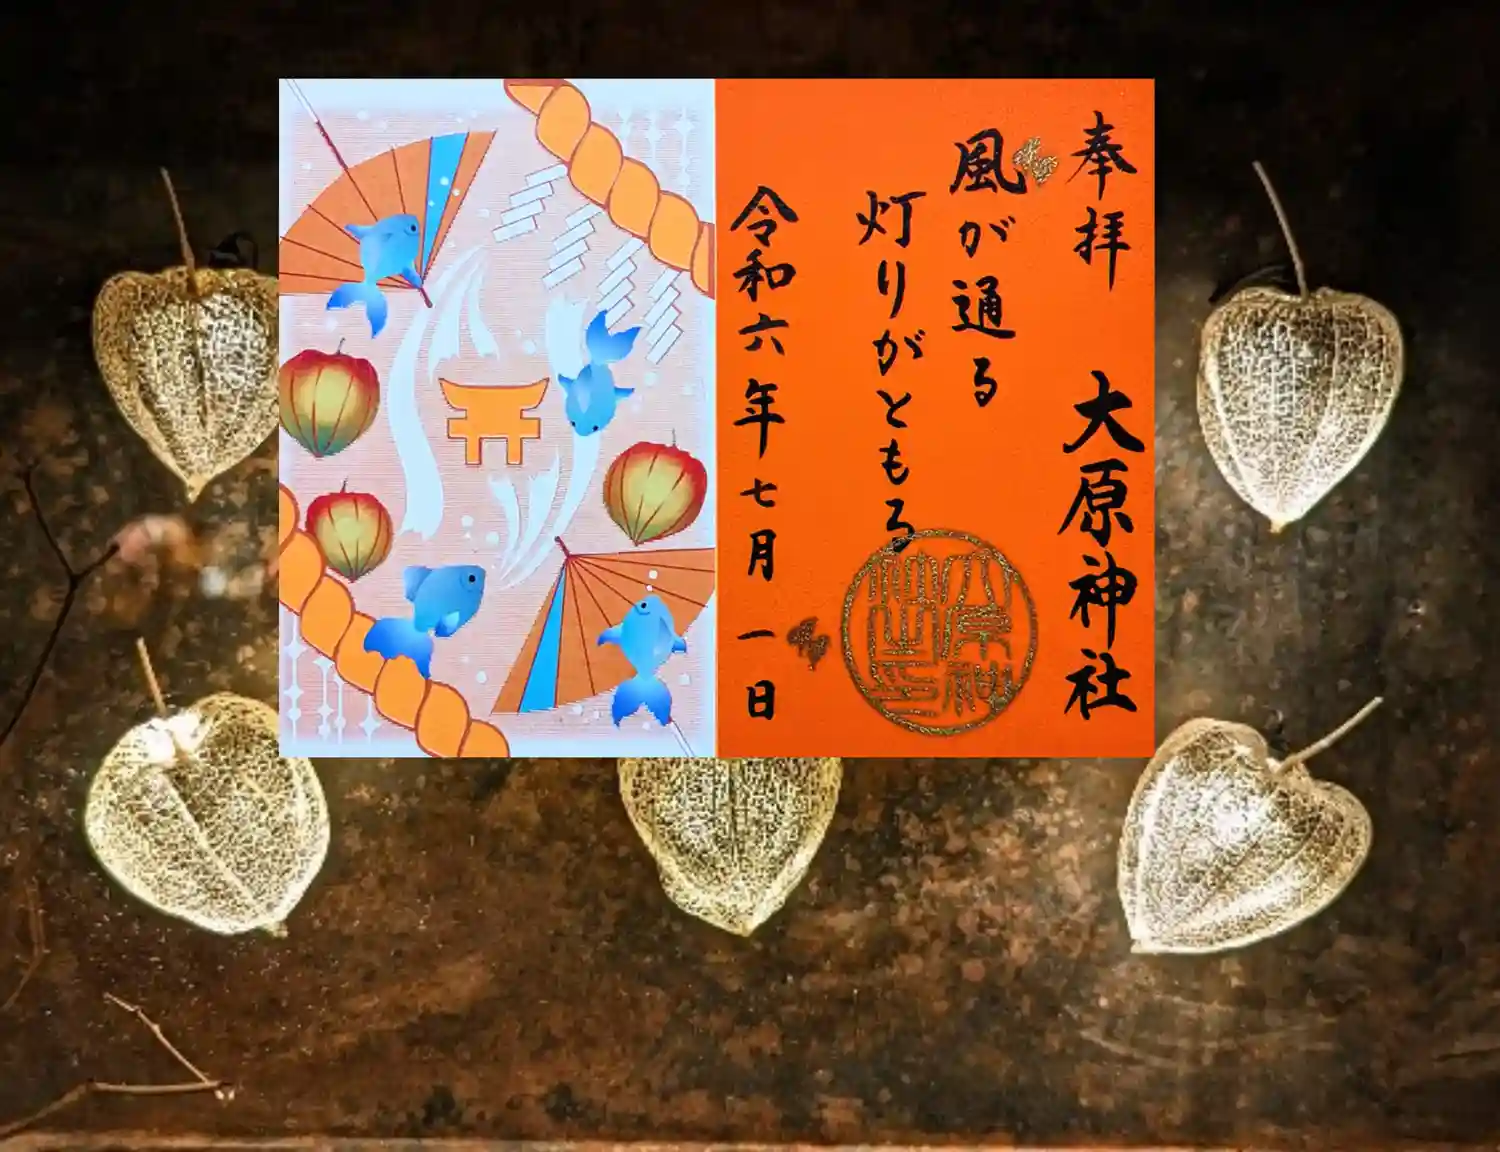 奉拝 大原神社
風が通る
灯りがともる
令和六年七月一日